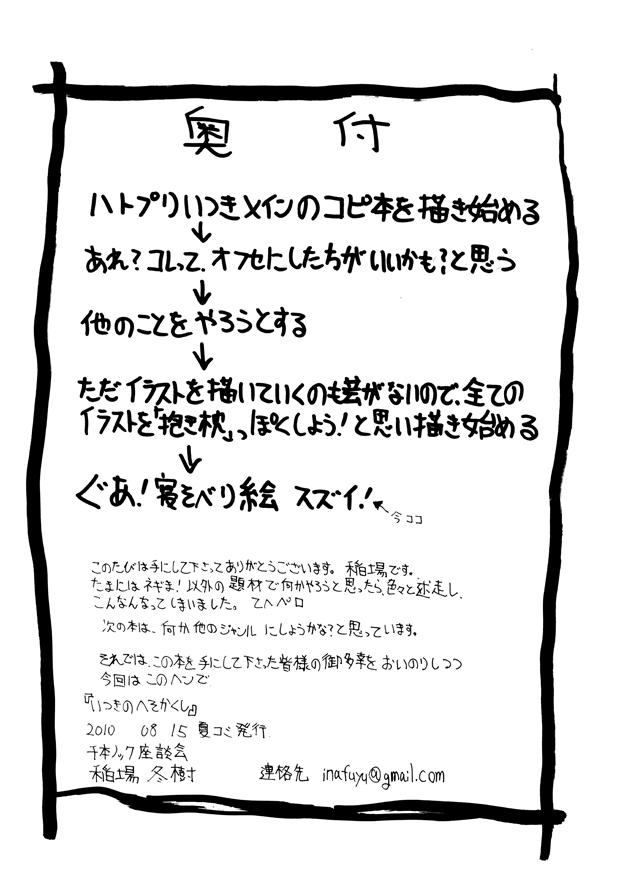 奥付
ハトプリいつきメインのコピ本を描き始める
↓
あれ?コレって、オフセにしたちがいいかも?と思う
↓
他のことをやろうとする
↓
ただイラストを描いていくのも芸がないので、全ての
イラストを「抱き枕」っぽくしよう!と思い描き始める
↓
ぐあ!寝そべり絵 スズイ!
←今ココ
このたびは手にして下さってありがとうございます。稲場です。
たまにはネギま!以外の題材で何かやろうと思ったら、色々と迷走し、
こんなんなってしまいました。 てへペロ
次の本は、何か他のジャンルにしようかな?と思っています。
それでは、この本を手にして下さった皆様の御多幸をおいのりしつつ
今回はこのヘンで
『いつきのへそかくし』
2010 08 15 夏コミ発行
千本ノック座談会
稲場 冬樹 連絡先 inafuyu@gmail.com